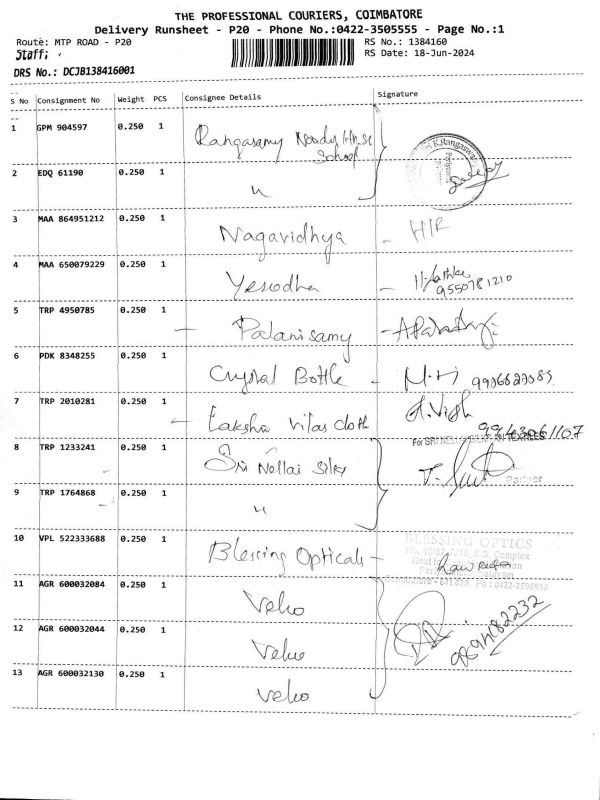 THE PROFESSIONAL COURIERS, COIMBATORE
Delivery Runsheet - P20 - Phone No.:0422-3505555 - Page No.:1
Route: MTP ROAD - P20 RS No.: 1384160
Staff; RS Date: 18-Jun-2024
DRS No.: DCJB138416001
S No Consignment No Weight PCS Consignee Details Signature
1 GPM 904597 0.250 1 Rangasamy School
K.Rangaswa
2 EDQ 61190 0.250 1 〃
3 MAA 864951212 0.250 1 Nagavidhya - H/R
4 MAA 650079229 0.250 1 Yesodha -
9550781210
5 TRP 4950785 0.250 1 - Palanisamy -
6 PDK 8348255 0.250 1 Crystal Bottle -
7 TRP 2010281 0.250 1 - Laksha vilas cloth 9943061107
For SRI NELLAI SILKS
8 TRP 1233241 0.250 1 Sri Nellai Silks
Partner
9 TRP 1764868 0.250 1 〃
10 VPL 522333688 0.250 1 Blessing Opticals -
BLESSING OPTICS
S.S. Complex
11 AGR 600032084 0.250 1 Veho
12 AGR 600032044 0.250 1 Veho
9894682232
13 AGR 600032130 0.250 1 Veho